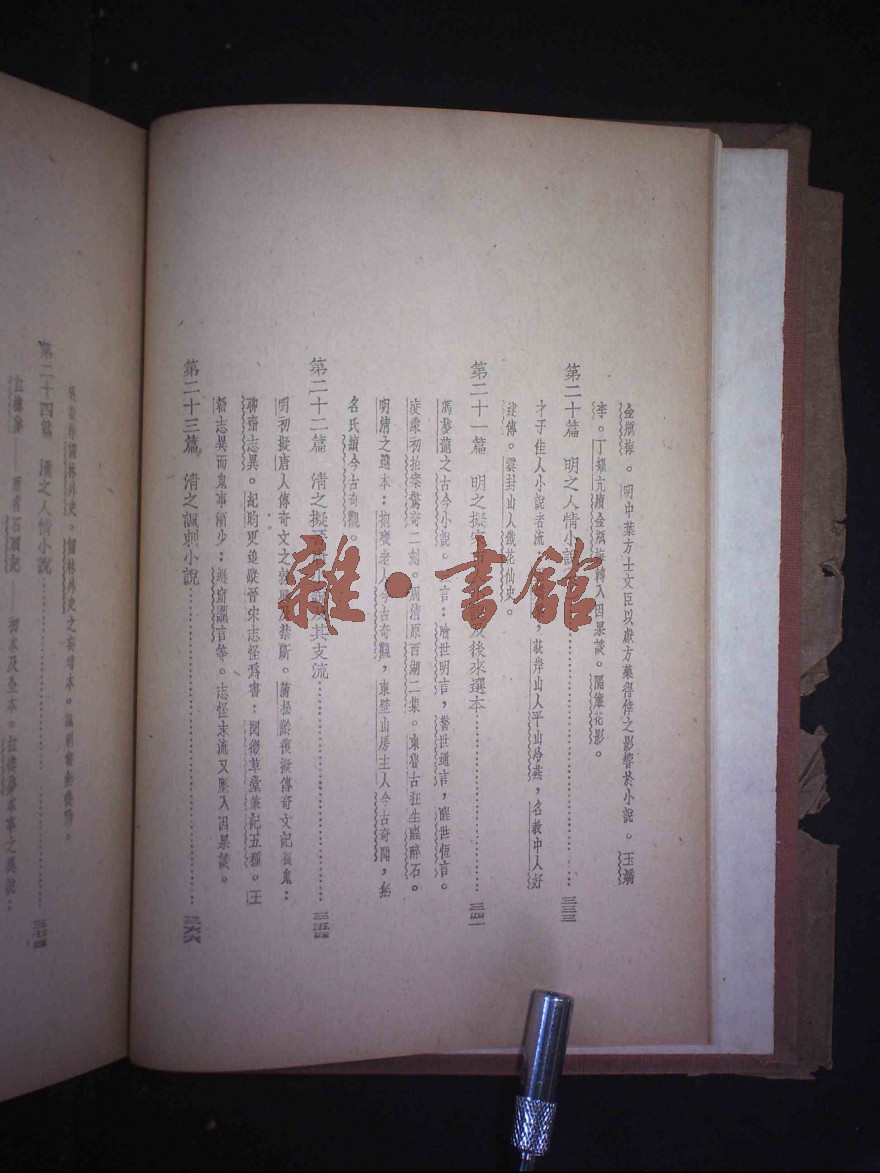 金瓶梅。明中葉方士文臣以獻方藥得倖之影響於小說。玉嬌
李。丁耀亢續金瓶梅轉入因果談。隔簾花影。
第二十篇 明之人情小說
才子佳人小說者流 ，荻岸山人平山冷燕，名教中人好
逑傳。雲封山人鐵花仙史。
第二十一篇 明之擬宋 及後來選本
馮夢龍之古今小說。 言：喻世明言，警世通言，醒世恆言。
凌濛初拍案驚奇二刻。周清原西湖二集。東魯古狂生醒醉石。
明清之選本：抱甕老人今古奇觀，東壁山房主人今古奇聞，無
名氏續今古奇觀。
第二十二篇 清之擬 小說及其支流
明初擬唐人傳奇文之勃興及禁斷。蒲松齡復擬傳奇文記狐鬼：
聊齋志異。紀昀更追蹤晉宋志怪爲書：閱微草堂筆記五種。王
韜志異而鬼事漸少： 讕言等。志怪末流又墜入因果談。
第二十三篇 清之諷刺小說
吳敬梓儒林外史。儒林外史之妄增本。
第二十四篇 清之人情小說
紅樓夢——原名石頭記——初本及全本。紅樓夢本事之異說：
雜·書館